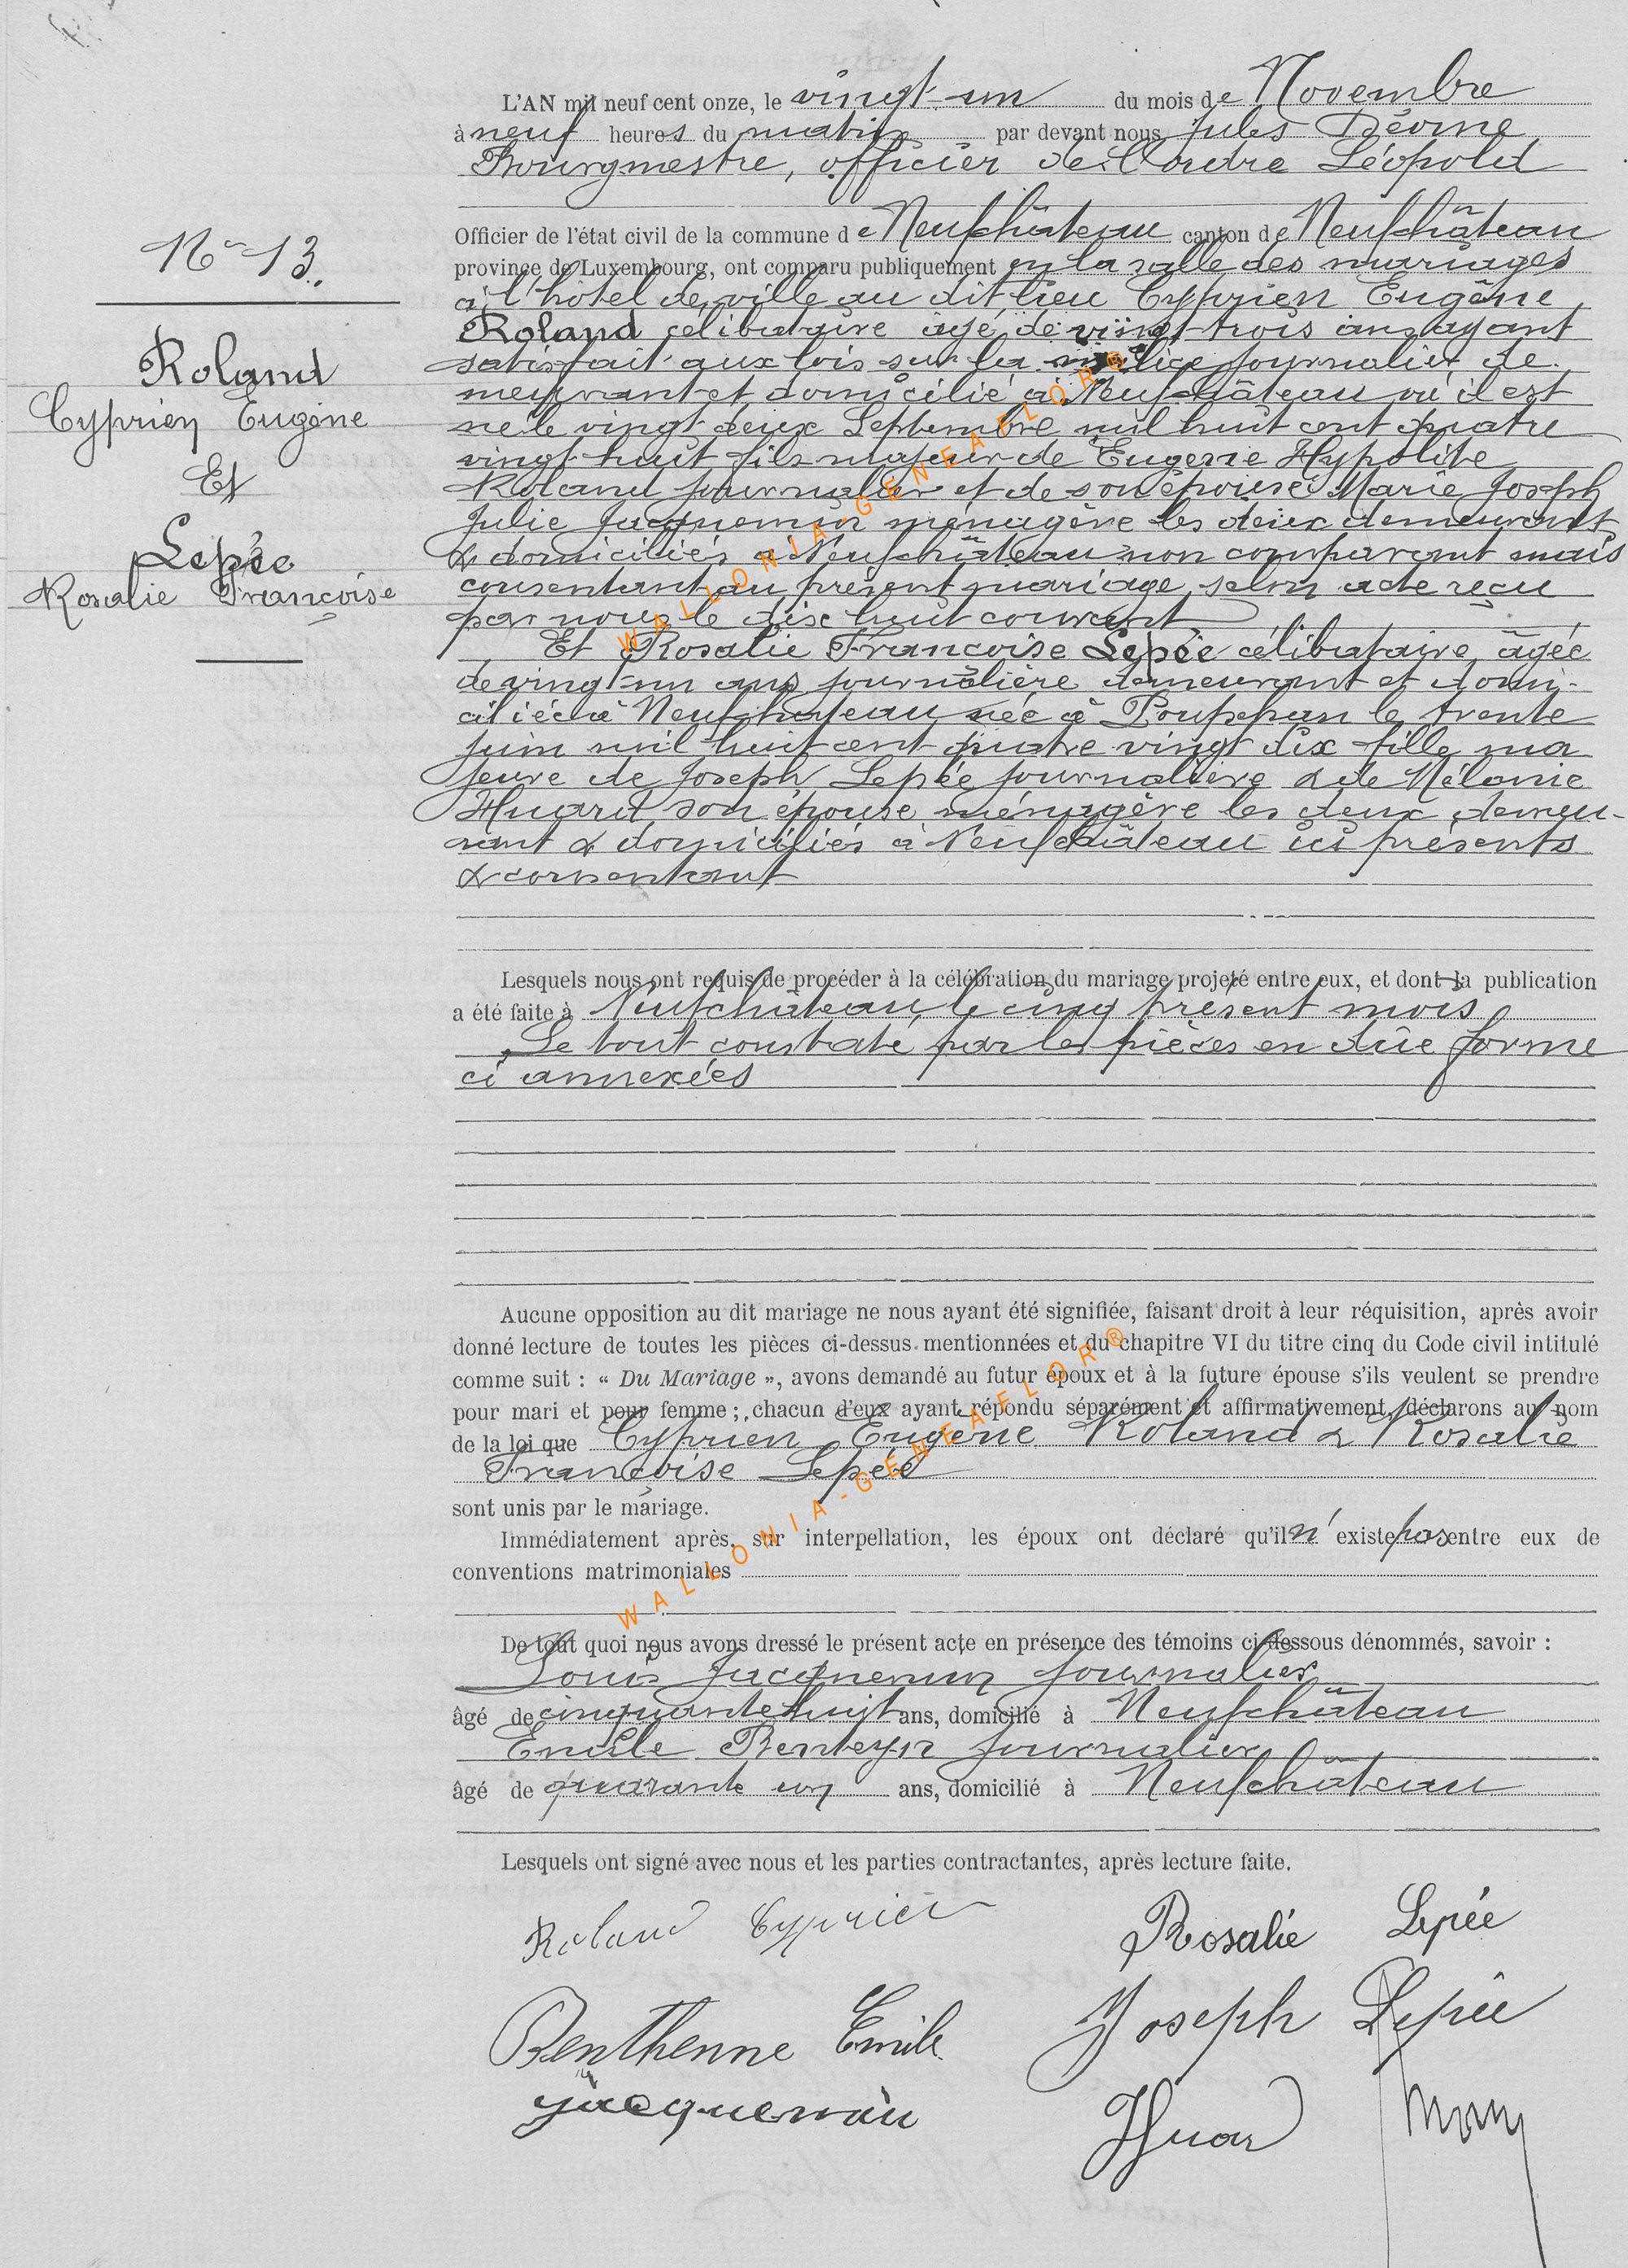 L'AN mil neuf cent onze, le vingt-un du mois de Novembre
à neuf heures du matin par devant nous Jules
Bourgmestre, officier de l'ordre Léopold
Officier de l'état civil de la commune de Neufchâteau canton de Neufchâteau
province de Luxembourg, ont comparu publiquement en la salle des mariages
à l'hôtel de ville au dit lieu Cyprien Eugène
Roland célibataire âgé de vingt-trois ans ayant
satisfait aux lois sur la milice journalier de
meurant et domicilié à Neufchâteau où il est
né le vingt deux Septembre mil huit cent quatre
vingt huit fils majeur de Eugène Hypolite
Roland journalier et de son épouse Marie Joseph
Julie Jacquemin ménagère les deux demeurant
& domiciliés à Neufchâteau non comparant mais
consentant au présent mariage selon acte reçu
par nous le dix huit courant
Et Rosalie Françoise Lepée célibataire âgée
de vingt-un ans journalière demeurant et domi-
ciliée à Neufchateau née à Poupehan le trente
juin mil huit cent quatre vingt dix fille ma
jeure de Joseph Lepée journalière & de Mélanie
Huard son épouse ménagère les deux demeu-
rant & domiciliés à Neufchâteau ici présents
& consentant
N° 13.
Roland
Cyprien Eugène
Et
Lepée
Rosalie Françoise
Lesquels nous ont requis de procéder à la célébration du mariage projeté entre eux, et dont la publication
a été faite à Neufchâteau le cinq présent mois
Le tout constaté par les pièces en dûe forme
ci annexées
Aucune opposition au dit mariage ne nous ayant été signifiée, faisant droit à leur réquisition, après avoir
donné lecture de toutes les pièces ci-dessus mentionnées et du chapitre VI du titre cinq du Code civil intitulé
comme suit : « Du Mariage », avons demandé au futur époux et à la future épouse s'ils veulent se prendre
pour mari et pour femme ; chacun d'eux ayant répondu séparément et affirmativement, déclarons au nom
de la loi que Cyprien Eugène Roland & Rosalie
Françoise Lepée
sont unis par le mariage.
Immédiatement après, sur interpellation, les époux ont déclaré qu'il n'existe pas entre eux de
conventions matrimoniales
De tout quoi nous avons dressé le présent acte en présence des témoins ci-dessous dénommés, savoir :
Louis Jacquemin journalier
âgé de cinquante huit ans, domicilié à Neufchâteau
Emile journalier
âgé de quarante un ans, domicilié à Neufchâteau
Lesquels ont signé avec nous et les parties contractantes, après lecture faite.
Roland Cyprien Rosalie Lepée
Benthenne Emile Joseph Lepée
Jacquemin Huard
WALLONIA-GENEAFLOR®
WALLONIA-GENEAFLOR®